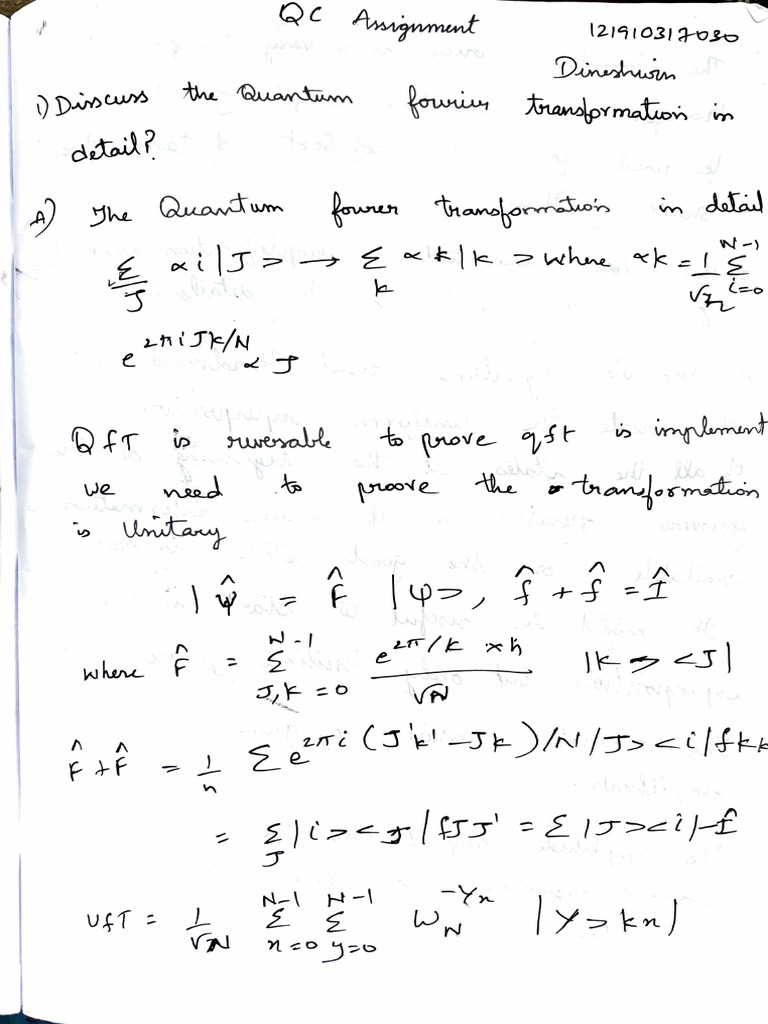 QC Assignment 121910317030
Dineshwin
1) Disscuss the Quantum fourier transformation in
detail?
A) The Quantum fourer transformation in detail
Σ_J αi|J> → Σ_k αk|k> where αk = 1/√n Σ_{i=0}^{N-1}
e^{2πiJk/N} α J
QfT is reversable to prove qft is implement
we need to proove the transformation
is Unitary
|ψ̂ = F̂ |ψ>, f̂ + f̂ = Î
where F̂ = Σ_{J,k=0}^{N-1} e^{2π/k ×ħ}/√N |k> <J|
F̂ + F̂ = 1/n Σ e^{2πi(J'k'-Jk)/N}/J> <i/fkk
= Σ_J |i> <J|fJJ' = Σ|J> <i|-Î
UfT = 1/√N Σ_{x=0}^{N-1} Σ_{y=0}^{N-1} W_N^{-Yx} |Y> kx|